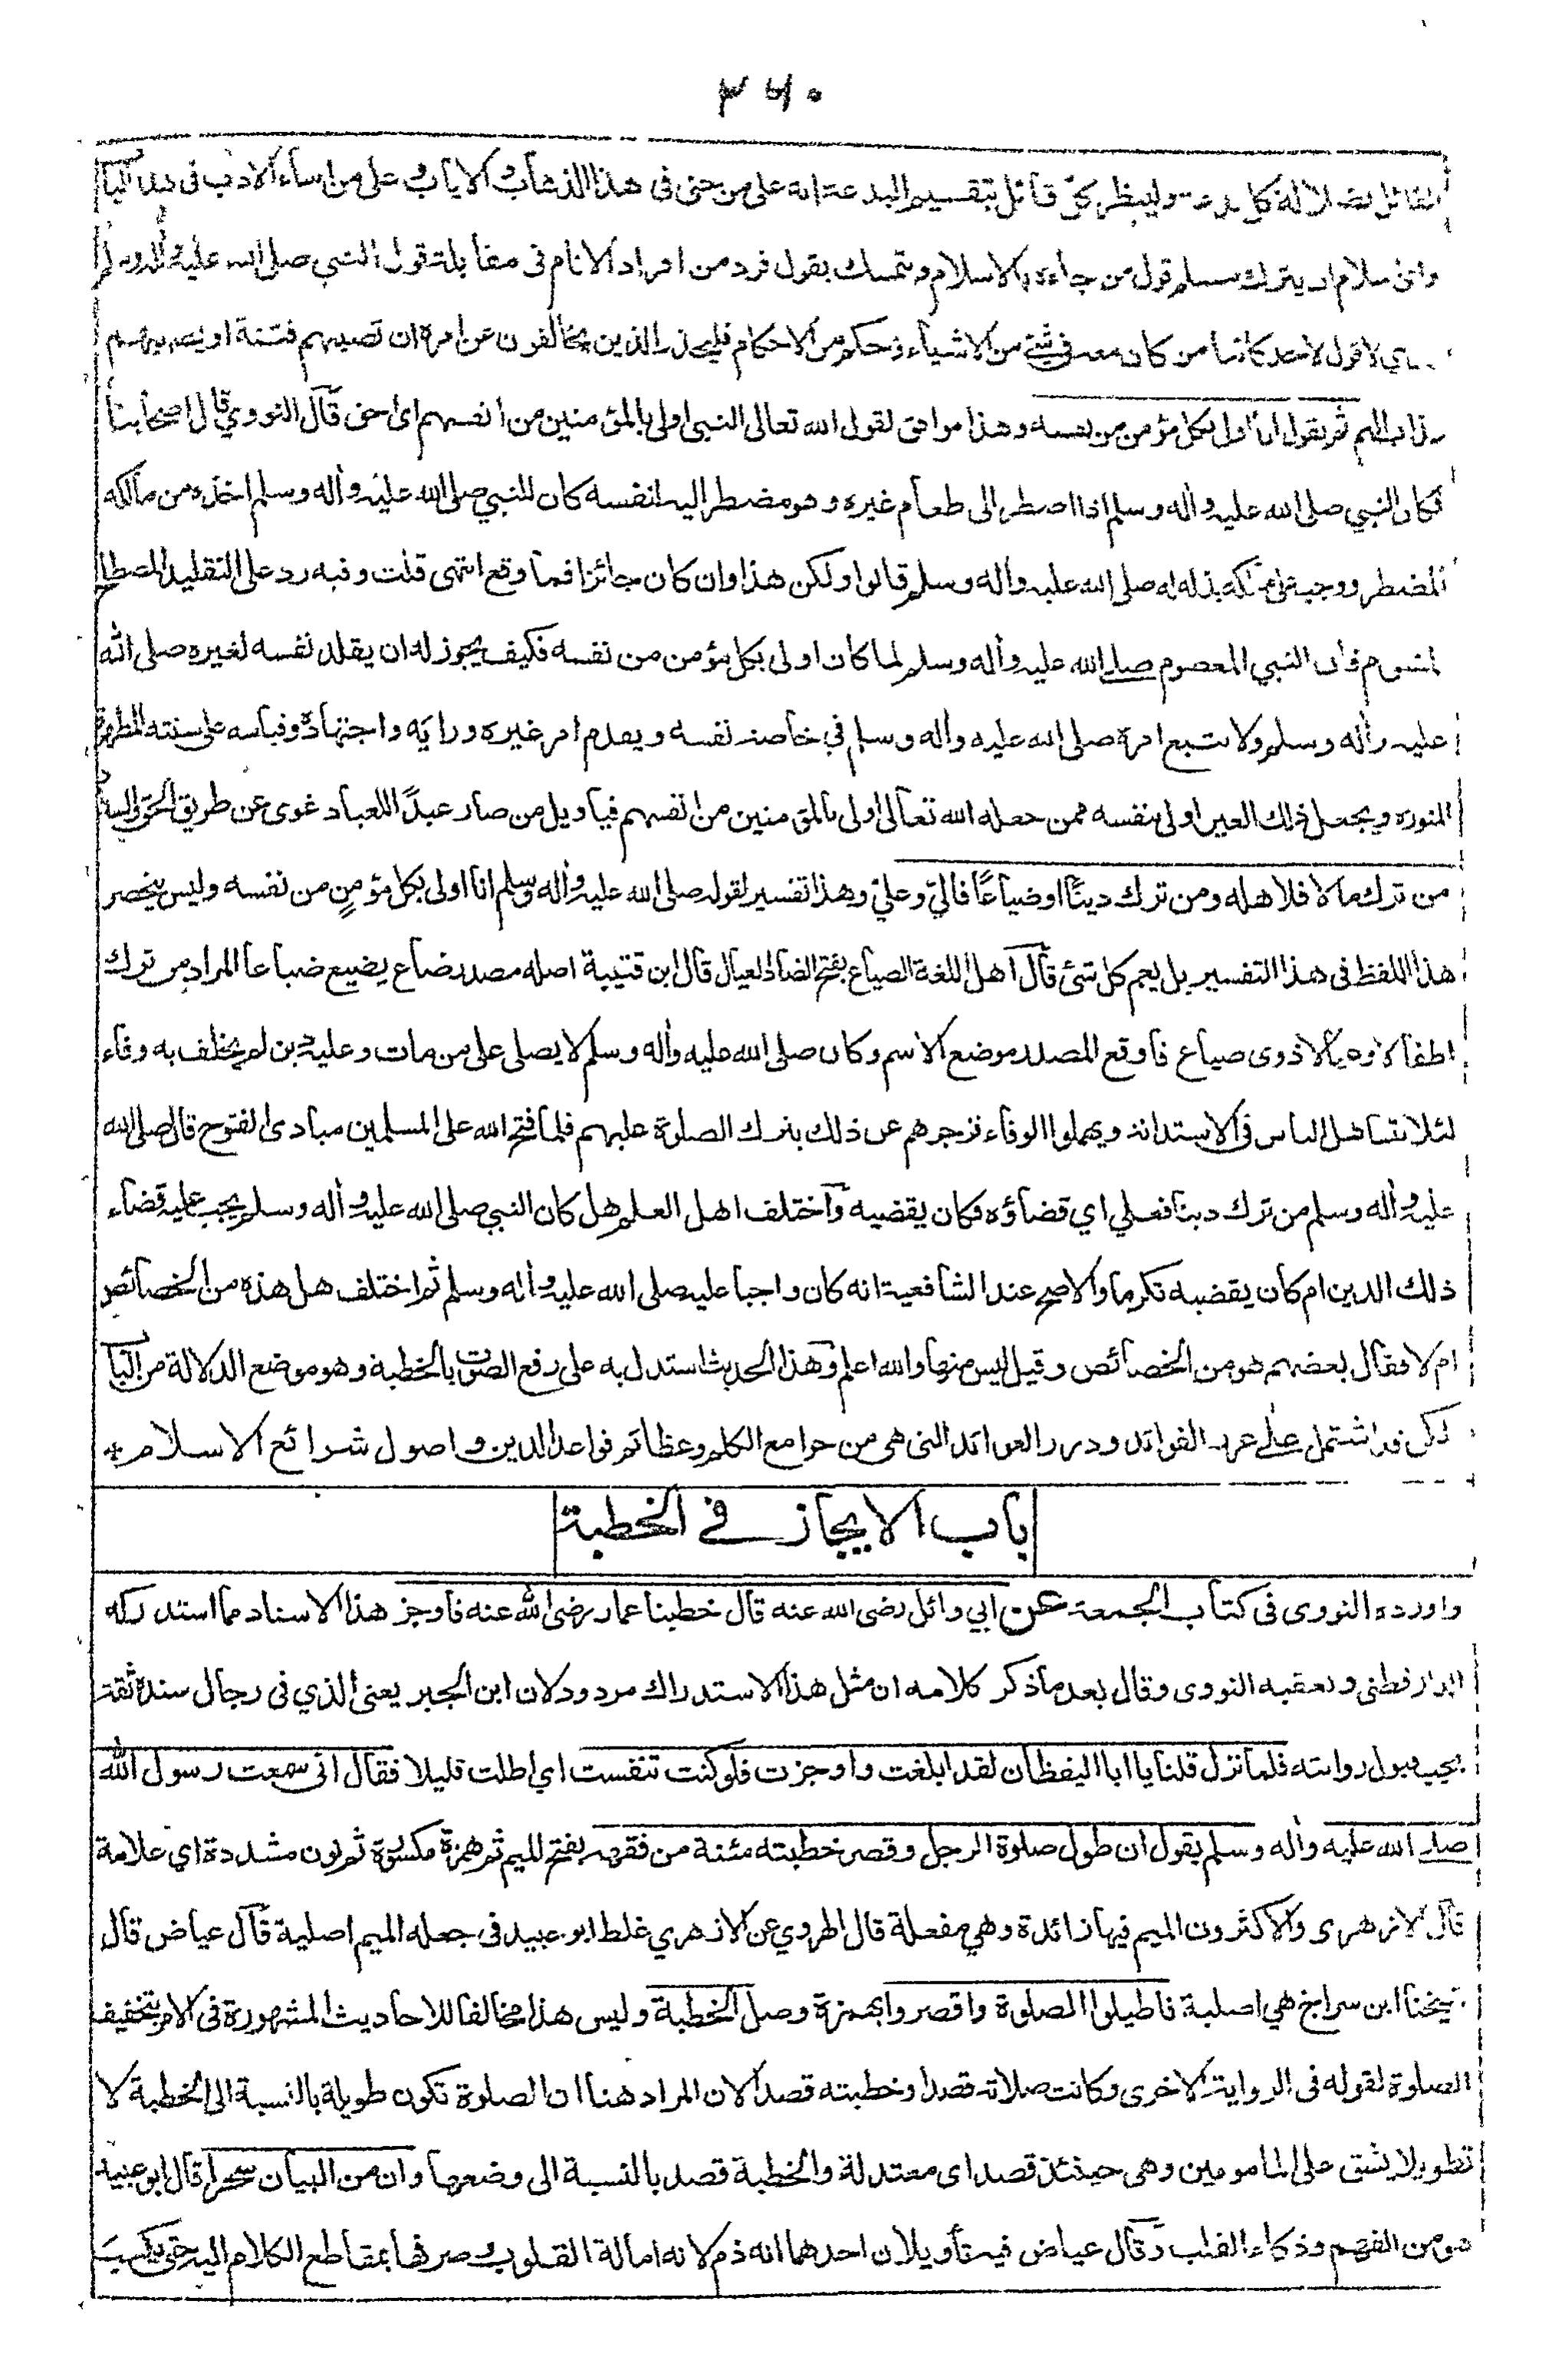 ٣٦٠
القائل بضلالة كل بدعة ولينظر بحق قائل بتقسيم البدعة انه على من جنى فى هذا الذهاب والاياب وعلى من اساء الادب فى هذا الباب
واى ملام ان يترك مسلم قول من جاءه بالاسلام ويتمسك بقول فرد من افراد الانام فى مقابلة قول النبي صلى الله عليه وأله وسلم
لا قول لاحد كائنا من كان معه في شئ من الاشياء وحكم من الاحكام فليحذر الذين يخالفون عن امره ان تصيبهم فتنة او يصيبهم
عذاب اليم ثم يقول انا اولى بكل مؤمن من نفسه وهذا موافق لقول الله تعالى النبى اولى بالمؤمنين من انفسهم اى احق قال النووي قال اصحابنا
فكان النبي صلى الله عليه وأله وسلم اذا اضطر الى طعام غيره وهو مضطر اليه لنفسه كان للنبي صلى الله عليه وأله وسلم اخذه من مالكه
المضطر ووجب على مالكه بذله له صلى الله عليه وأله وسلم قالوا ولكن هذا وان كان جائزا فما وقع انتهى قلت وفيه رد على التقليد المصطلح
المشوم فان النبي المعصوم صلى الله عليه وأله وسلم لما كان اولى بكل مؤمن من نفسه فكيف يجوز له ان يقلد نفسه لغيره صلى الله
عليه وأله وسلم ولا يتبع امره صلى الله عليه وأله وسلم في خاصة نفسه ويقدم امر غيره ورايه واجتهاده وقياسه على سنته المطهرة
المنوره ويجعل ذلك الغير اولى بنفسه ممن جعله الله تعالى اولى بالمؤمنين من انفسهم فيا ويل من صار عبدًا للعباد غوى عن طريق الحق والسداد
من ترك مالا فلاهله ومن ترك دينًا او ضياعًا فاليّ وعليّ وهذا تفسير لقوله صلى الله عليه وأله وسلم انا اولى بكل مؤمنٍ من نفسه وليس ينحصر
هذا اللفظ فى هذا التفسير بل يعم كل شئ قال اهل اللغة الضياع بفتح الضاد العيال قال ابن قتيبة اصله مصدر ضاع يضيع ضياعا المراد من ترك
اطفالا وعيالا ذوى ضياع فاوقع المصدر موضع الاسم وكان صلى الله عليه وأله وسلم لا يصلى على من مات وعليه دين لم يخلف به وفاء
لئلا يتساهل الناس فى الاستدانة ويهملوا الوفاء فزجرهم عن ذلك بترك الصلوة عليهم فلما فتح الله على المسلمين مبادى الفتوح قال صلى الله
عليه وأله وسلم من ترك دينا فعلي اي قضاؤه فكان يقضيه واختلف اهل العلم هل كان النبي صلى الله عليه وأله وسلم يجب عليه قضاء
ذلك الدين ام كان يقضيه تكرما والاصح عند الشافعية انه كان واجبا عليه صلى الله عليه وأله وسلم ثم اختلف هل هذه من الخصائص
ام لا فقال بعضهم هو من الخصائص وقيل ليس منها والله اعلم وهذا الحديث استدل به على رفع الصوت بالخطبة وهو موضع الدلالة من الباب
لكن قد اشتمل على غرر الفوائد ودرر العوائد التى هى من جوامع الكلم وعظائم قواعد الدين واصول شرائع الاسلام *
باب الايجاز فى الخطبة
واورده النووى فى كتاب الجمعة عن ابي وائل رضى الله عنه قال خطبنا عمار رضى الله عنه فاوجز هذا الاسناد مما استدركه
الدارقطنى وتعقبه النووى وقال بعد ما ذكر كلامه ان مثل هذا الاستدراك مردود لان ابن الجبر يعنى الذي فى رجال سنده ثقة
يجب قبول روايته فلما نزل قلنا يا ابا اليقظان لقد ابلغت واوجزت فلو كنت تنفست اي اطلت قليلا فقال انى سمعت رسول الله
صلى الله عليه وأله وسلم يقول ان طول صلوة الرجل وقصر خطبته مئنة من فقهه بفتح الميم ثم همزة مكسورة ثم نون مشددة اي علامة
قال الازهرى والاكثرون الميم فيها زائدة وهي مفعلة قال الهروي عن الازهري غلط ابو عبيد فى جعله الميم اصلية قال عياض قال
شيخنا ابن سراج هي اصلية فاطيلوا الصلوة واقصروا بهمزة وصل الخطبة وليس هذا مخالفا للاحاديث المشهورة فى الامر بتخفيف
الصلوة لقوله فى الرواية الاخرى وكانت صلاته قصدا وخطبته قصدا لان المراد هنا ان الصلوة تكون طويلة بالنسبة الى الخطبة لا
تطويلا يشق على المامومين وهى حينئذ قصد اى معتدلة والخطبة قصد بالنسبة الى وضعها وان من البيان سحرا قال ابو عبيد
هو من الفهم وذكاء القلب وقال عياض فيه تأويلان احدهما انه ذم لانه امالة القلوب وصرفها بمقاطع الكلام اليه حتى يكسب